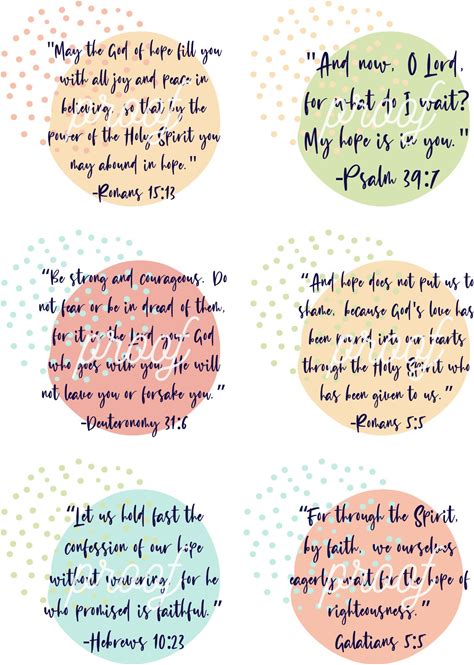 "May the God of hope fill you
with all joy and peace in
believing, so that by the
power of the Holy Spirit you
may abound in hope."
-Romans 15:13
proof
"And now, O Lord,
for what do I wait?
My hope is in you."
-Psalm 39:7
proof
"Be strong and courageous. Do
not fear or be in dread of them,
for it is the Lord your God
who goes with you. He will
not leave you or forsake you."
-Deuteronomy 31:6
proof
"And hope does not put us to
shame, because God's love has
been poured into our hearts
through the Holy Spirit who
has been given to us."
-Romans 5:5
proof
"Let us hold fast the
confession of our hope
without wavering, for he
who promised is faithful."
-Hebrews 10:23
proof
"For through the Spirit,
by faith, we ourselves
eagerly wait for the hope of
righteousness."
Galatians 5:5
proof